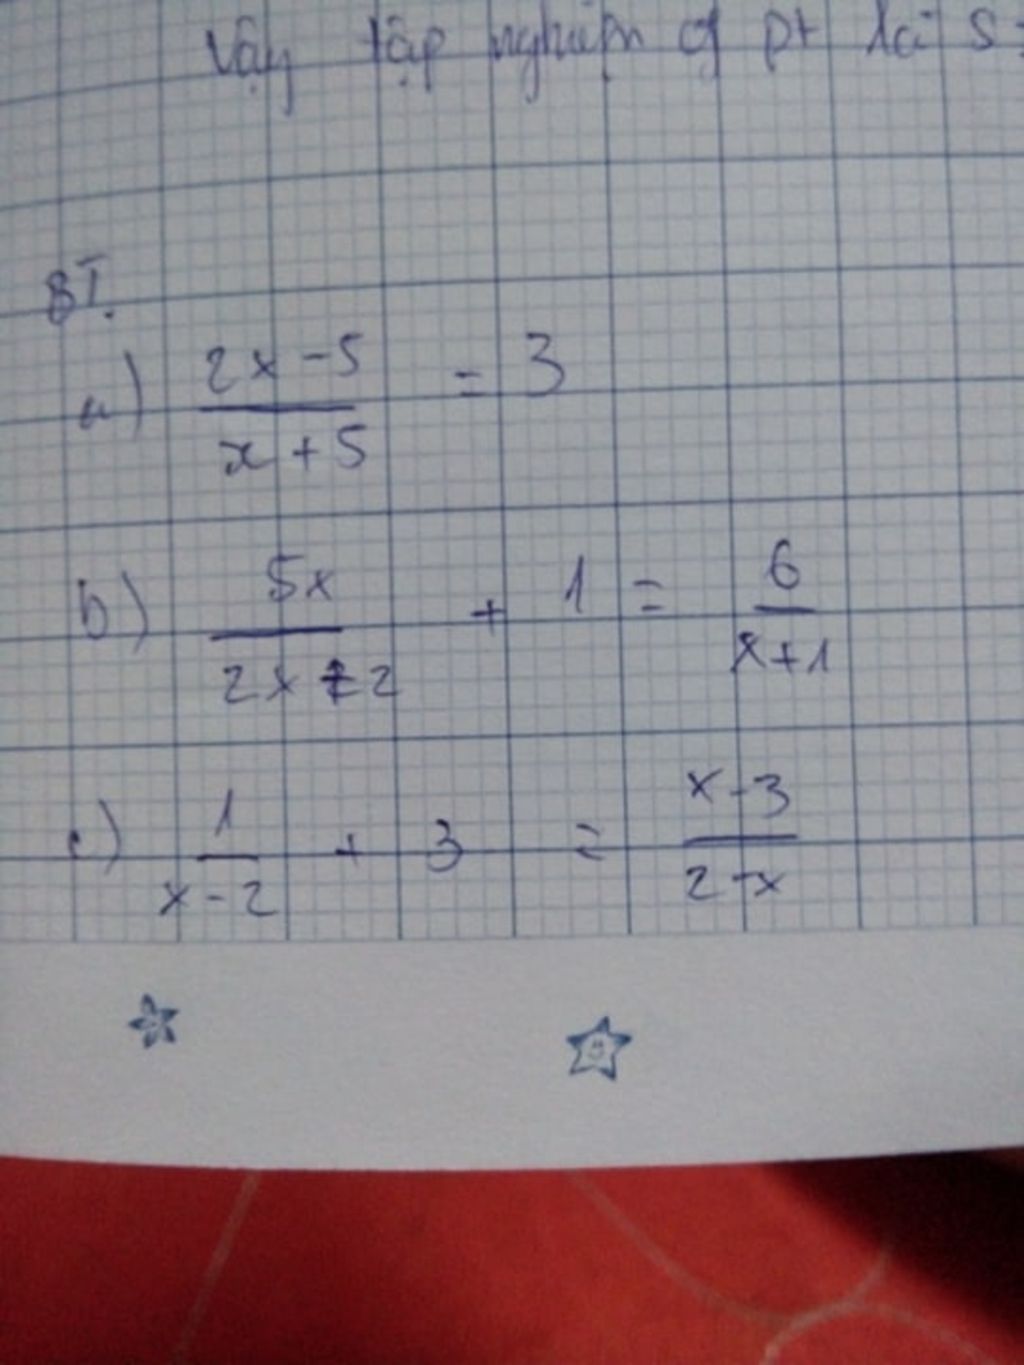 Vậy tập nghiệm of pt là S =
BT.
a) \frac{2x-5}{x+5} = 3
b) \frac{5x}{2x+2} + 1 = \frac{6}{x+1}
c) \frac{1}{x-2} + 3 = \frac{x-3}{2-x}